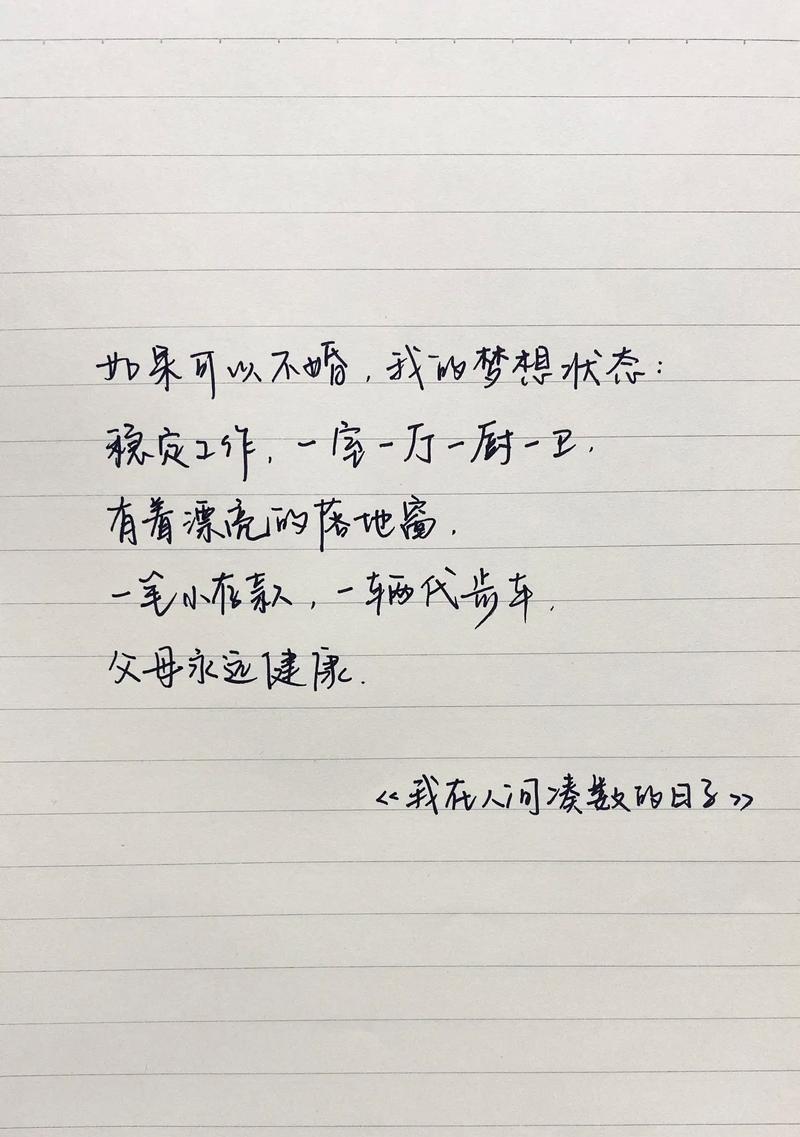 如果可以不婚，我的梦想状态：
稳定工作，一室一厅一厨一卫，
有着漂亮的落地窗，
一笔小存款，一辆代步车，
父母永远健康.
《我在人间凑数的日子》